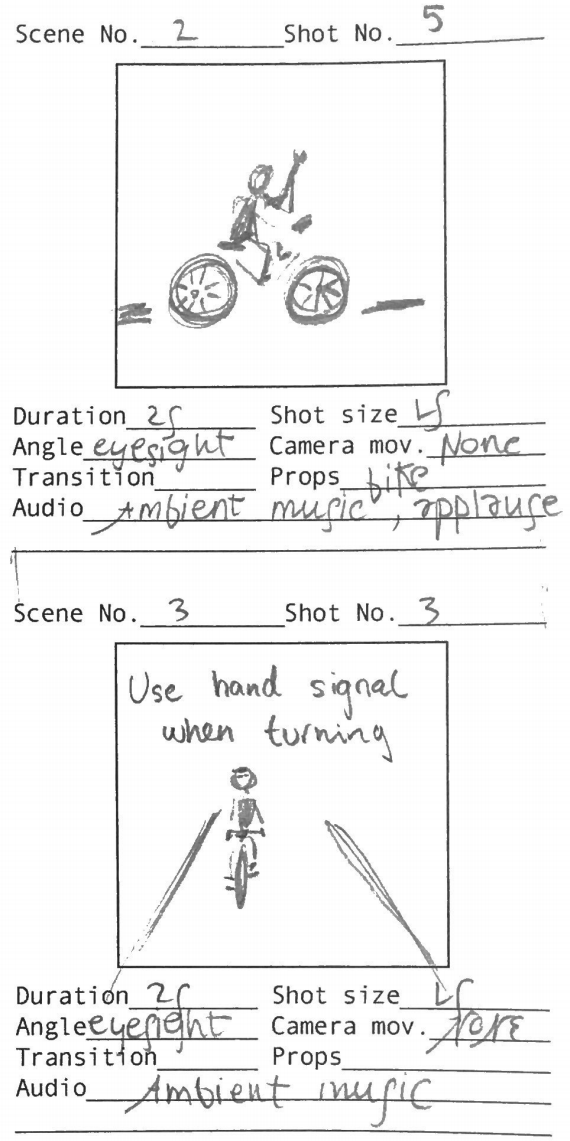 Scene No. 2 Shot No. 5
Duration 2s Shot size LS
Angle eyesight Camera mov. None
Transition Props bike
Audio Ambient music, applause
Scene No. 3 Shot No. 3
Use hand signal
when turning
Duration 2s Shot size LS
Angle eyesight Camera mov. NONE
Transition Props
Audio Ambient music